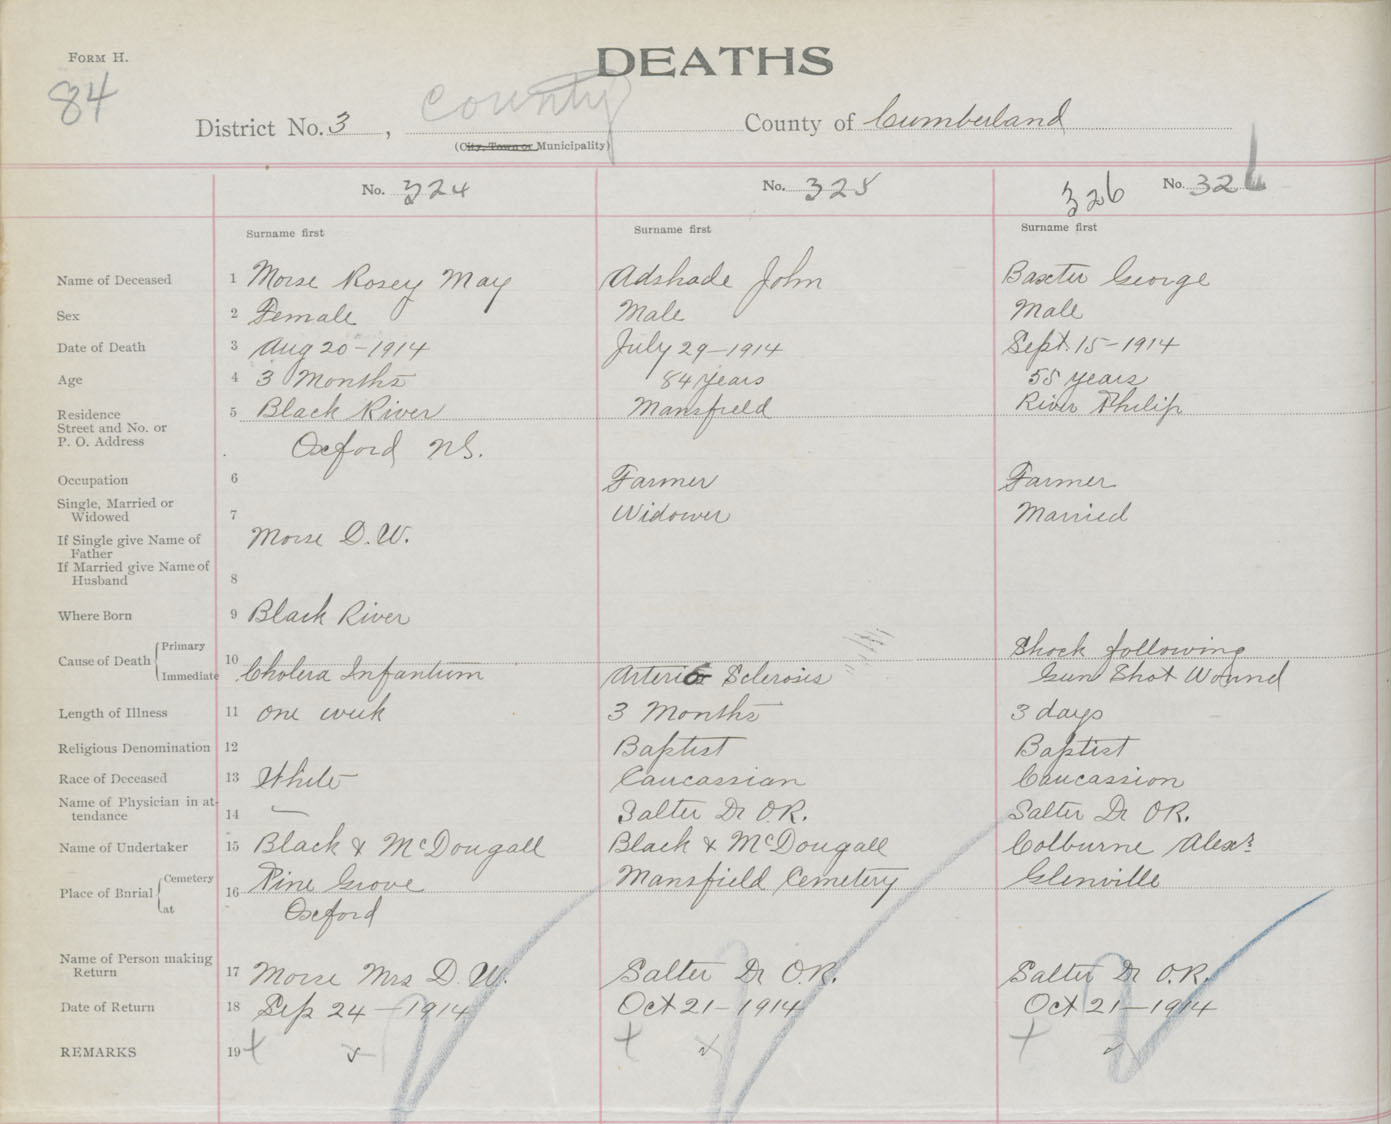 FORM H.
DEATHS
84
County
District No. 3, County of Cumberland
(City, Town or Municipality)
No. 324 No. 325 326 No. 326
Surname first Surname first Surname first
Name of Deceased 1 Morse Rosey May Adshade John Baxter George
Sex 2 Female Male Male
Date of Death 3 Aug 20-1914 July 29-1914 Sept. 15-1914
Age 4 3 Months 84 years 55 years
Residence 5 Black River Mansfield River Philip
Street and No. or
P. O. Address Oxford N.S.
Occupation 6 Farmer Farmer
Single, Married or
Widowed 7 Widower Married
If Single give Name of Morse D. W.
Father
If Married give Name of
Husband 8
Where Born 9 Black River
Primary Shock following
Cause of Death 10
Immediate Cholera Infantum Arterio Sclerosis Gun Shot Wound
Length of Illness 11 One week 3 Months 3 days
Religious Denomination 12 Baptist Baptist
Race of Deceased 13 White Caucassian Caucassion
Name of Physician in at-
tendance 14 — Salter Dr O.R. Salter Dr O.R.
Name of Undertaker 15 Black & McDougall Black & McDougall Colburne Alexr.
Cemetery Pine Grove Mansfield Cemetery Glenville
Place of Burial 16
at Oxford
Name of Person making
Return 17 Morse Mrs D. W. Salter Dr O.R. Salter Dr O.R.
Date of Return 18 Sep 24-1914 Oct 21-1914 Oct 21-1914
REMARKS 19